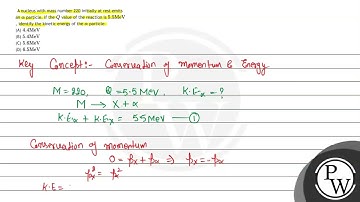 A nucleus with mass number 220 initially at rest emits
an α-particle. If the Q value of the reaction is 5.5MeV
. Identify the kinetic energy of the α-particle:
(A) 4.4MeV
(B) 5.4MeV
(C) 5.6MeV
(D) 6.5MeV
Key Concept:- Conservation of momentum & Energy
M = 220, Q = 5.5 MeV, K.Eα = ?
M → X + α
K.Ex + K.Eα = 5.5 MeV — ①
Conservation of momentum
0 = Px + Pα ⇒ Px = -Pα
Px² = Pα²
K.E =
PW
PW